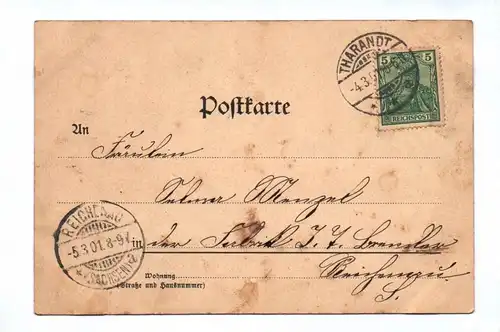 THARANDT
-4.3.01.
5 5
REICHSPOST
Postkarte
An
Fräulein
Selma Menzel
in der Fabrik J. T. Brendler
Reichenau
S.
REICHENAU
-5.3.01.8-9V.
SACHSEN
Wohnung
(Straße und Hausnummer)